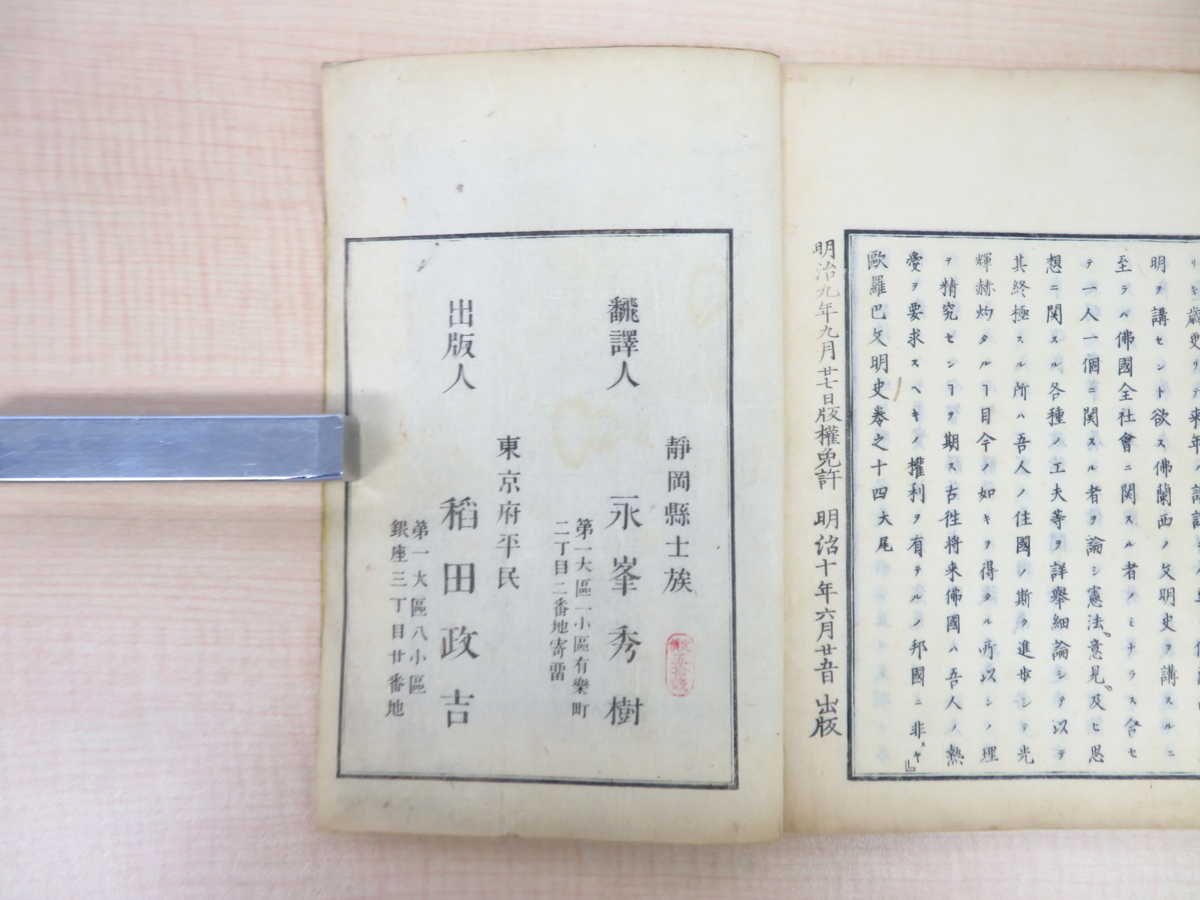 明ヲ講セント欲ス佛蘭西ノ文明史ヲ講スルニ
至ラハ佛國全社會ニ関スル者ノミナラス合セ
テ一人一個ニ関スル者ヲ論シ憲法、意見、及ヒ思
想ニ関スル各種ノ工夫等ヲ詳舉細論シテ以テ
其終極スル所ハ吾人ノ住國ノ斯ク進歩シテ光
輝赫灼タルヿ目今ノ如キヲ得タル所以シノ理
ヲ精究センヿヲ期ス古徃将来佛國ハ吾人ノ熱
愛ヲ要求スヘキノ權利ヲ有テルノ邦國ニ非スヤ』
歐羅巴文明史巻之十四大尾
明治九年九月廿七日版權免許 明治十年六月廿五日出版
靜岡縣士族
飜譯人 永峯秀樹
第一大區一小區有樂町
二丁目二番地寄留
東京府平民
出版人 稻田政吉
第一大區八小區
銀座三丁目廿番地